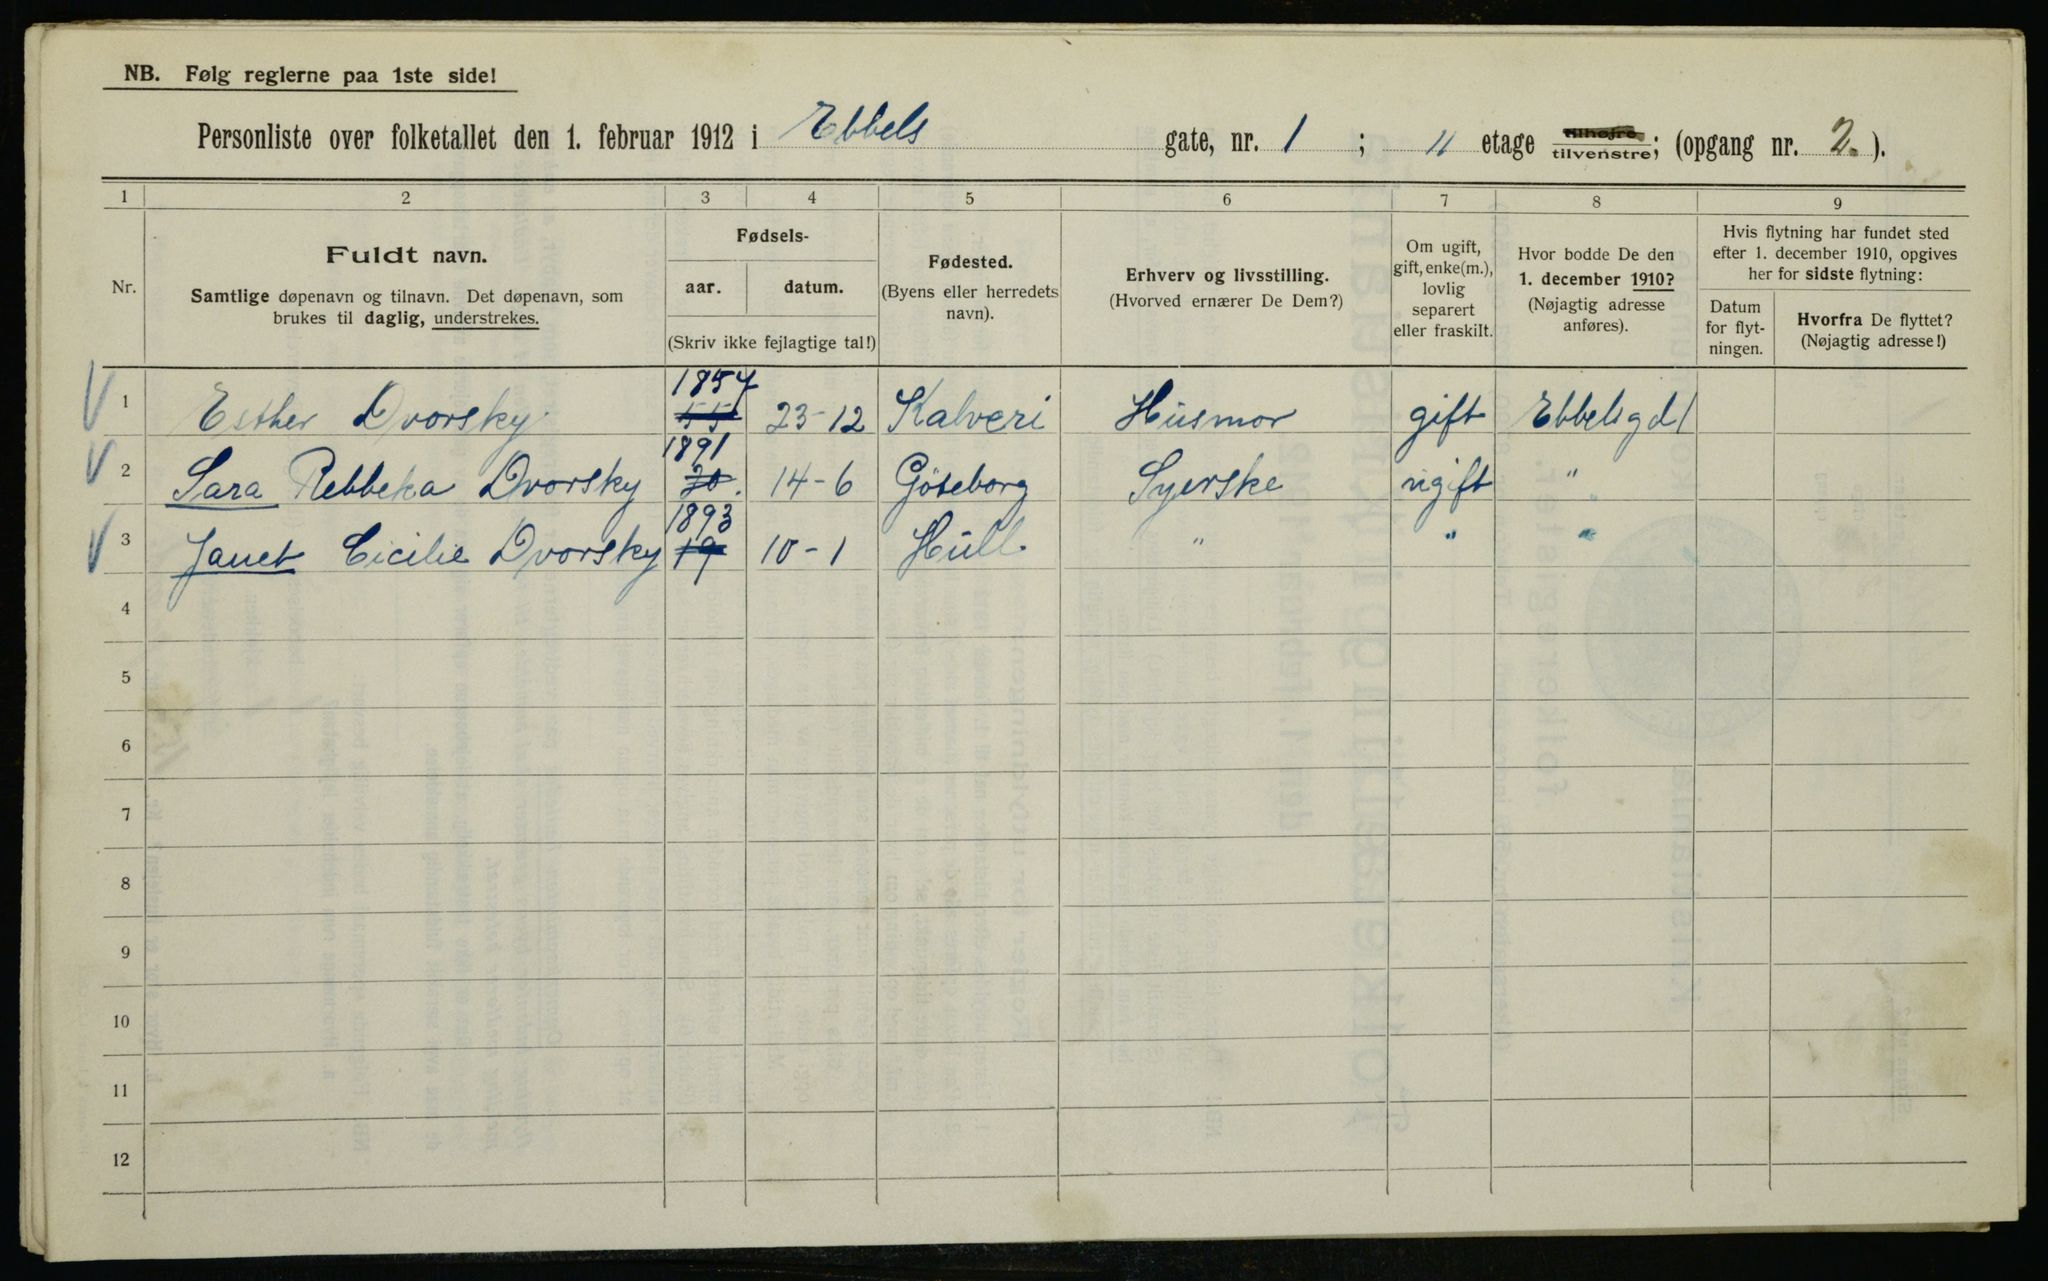 NB. Følg reglerne paa 1ste side!
Personliste over folketallet den 1. februar 1912 i Ebbels gate, nr. 1 ; 11 etage tilhøjre tilvenstre; (opgang nr. 2. ).
1 2 3 4 5 6 7 8 9
Nr.
Fuldt navn.
Samtlige døpenavn og tilnavn. Det døpenavn, som
brukes til daglig, understrekes.
Fødsels-
aar. datum.
(Skriv ikke fejlagtige tal!)
Fødested.
(Byens eller herredets
navn).
Erhverv og livsstilling.
(Hvorved ernærer De Dem?)
Om ugift,
gift, enke(m.),
lovlig
separert
eller fraskilt.
Hvor bodde De den
1. december 1910?
(Nøjagtig adresse
anføres).
Hvis flytning har fundet sted
efter 1. december 1910, opgives
her for sidste flytning:
Datum
for flyt-
ningen.
Hvorfra De flyttet?
(Nøjagtig adresse!)
1854
1 Esther Dvorsky 55 23-12 Kalveri Husmor gift Ebbelsgd 1
1891
2 Sara Rebbeka Dvorsky 20. 14-6 Göteborg Syerske ugift "
1893
3 Janet Cicilie Dvorsky 19 10-1 Hull " " "
4
5
6
7
8
9
10
11
12